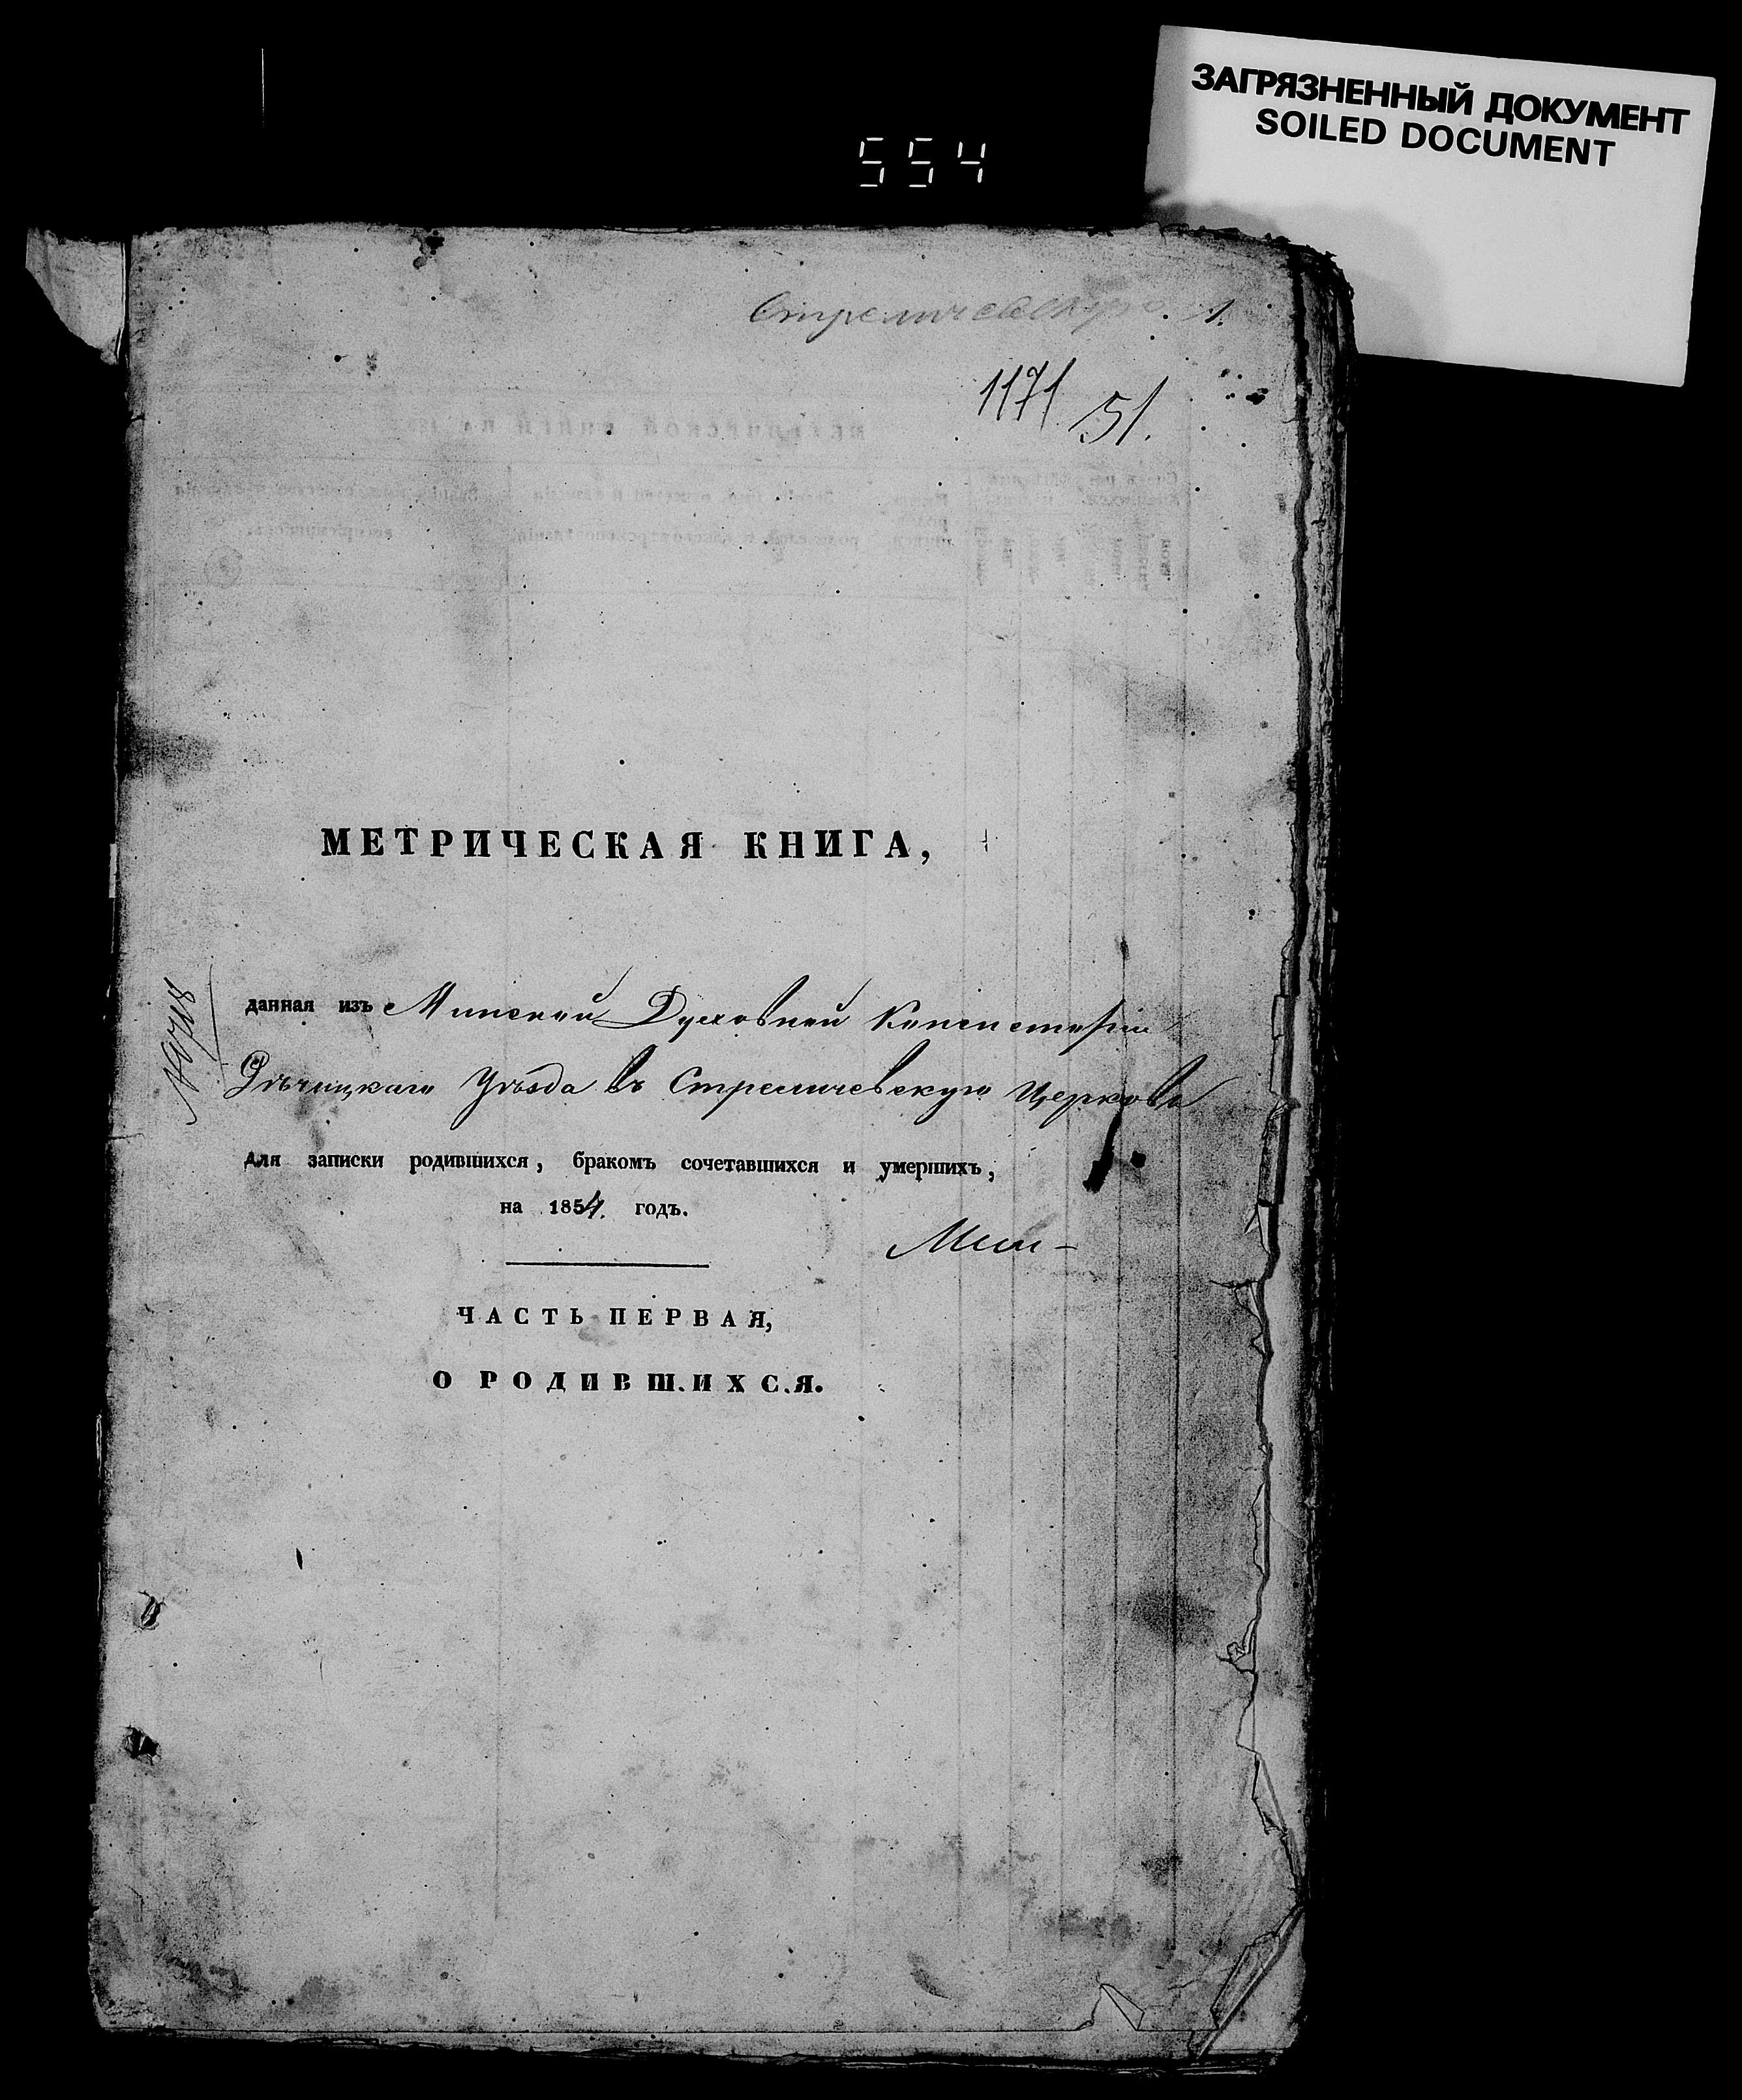 ЗАГРЯЗНЕННЫЙ ДОКУМЕНТ
SOILED DOCUMENT
554
1.
1171
51.
МЕТРИЧЕСКАЯ КНИГА,
данная изъ Минской Духовной Консисторіи
Рѣчицкаго Уѣзда въ Стреличевскую Церковь
для записки родившихся, бракомъ сочетавшихся и умершихъ,
на 1854. годъ.
ЧАСТЬ ПЕРВАЯ,
О РОДИВШИХСЯ.